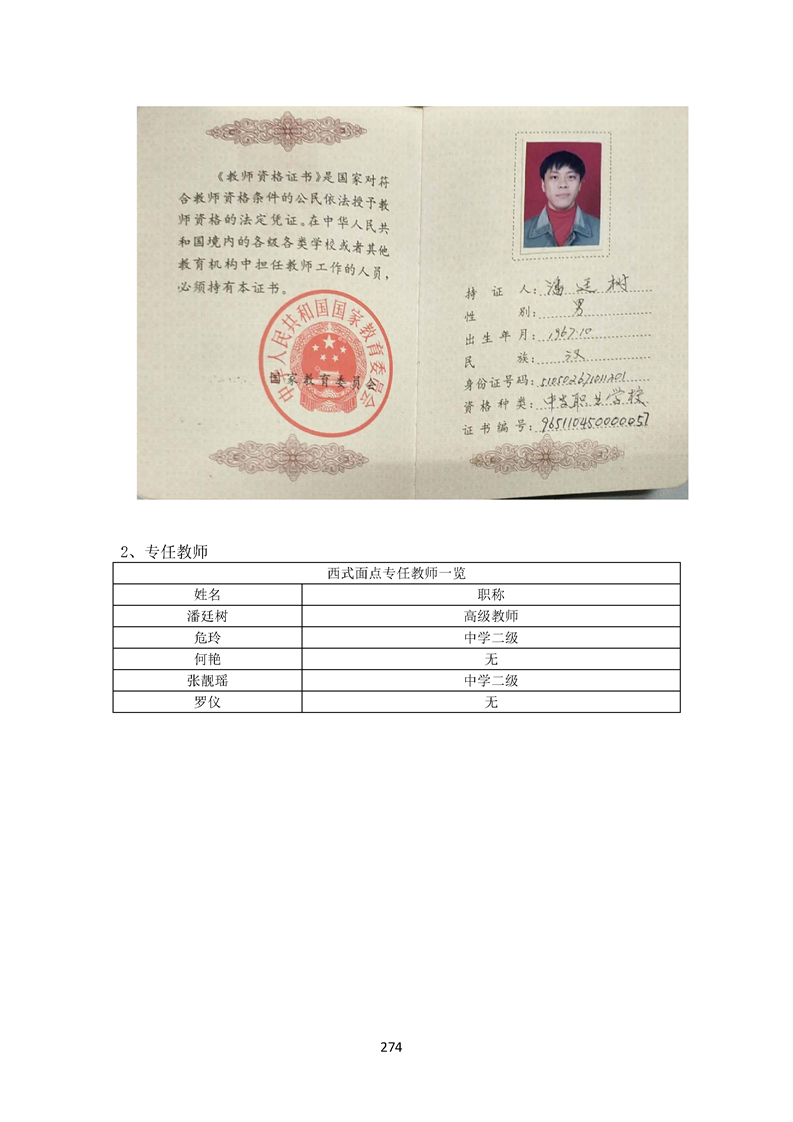 《教师资格证书》是国家对符
合教师资格条件的公民依法授予教
师资格的法定凭证。在中华人民共
和国境内的各级各类学校或者其他
教育机构中担任教师工作的人员,
必须持有本证书。
中华人民共和国国家教育委员会
国家教育委员会
持证人:潘廷树
性别:男
出生年月:1967.10
民族:汉
身份证号码:
资格种类:
证书编号:96511045000005７
2、专任教师
西式面点专任教师一览
姓名 职称
潘廷树 高级教师
危玲 中学二级
何艳 无
张靓瑶 中学二级
罗仪 无
274